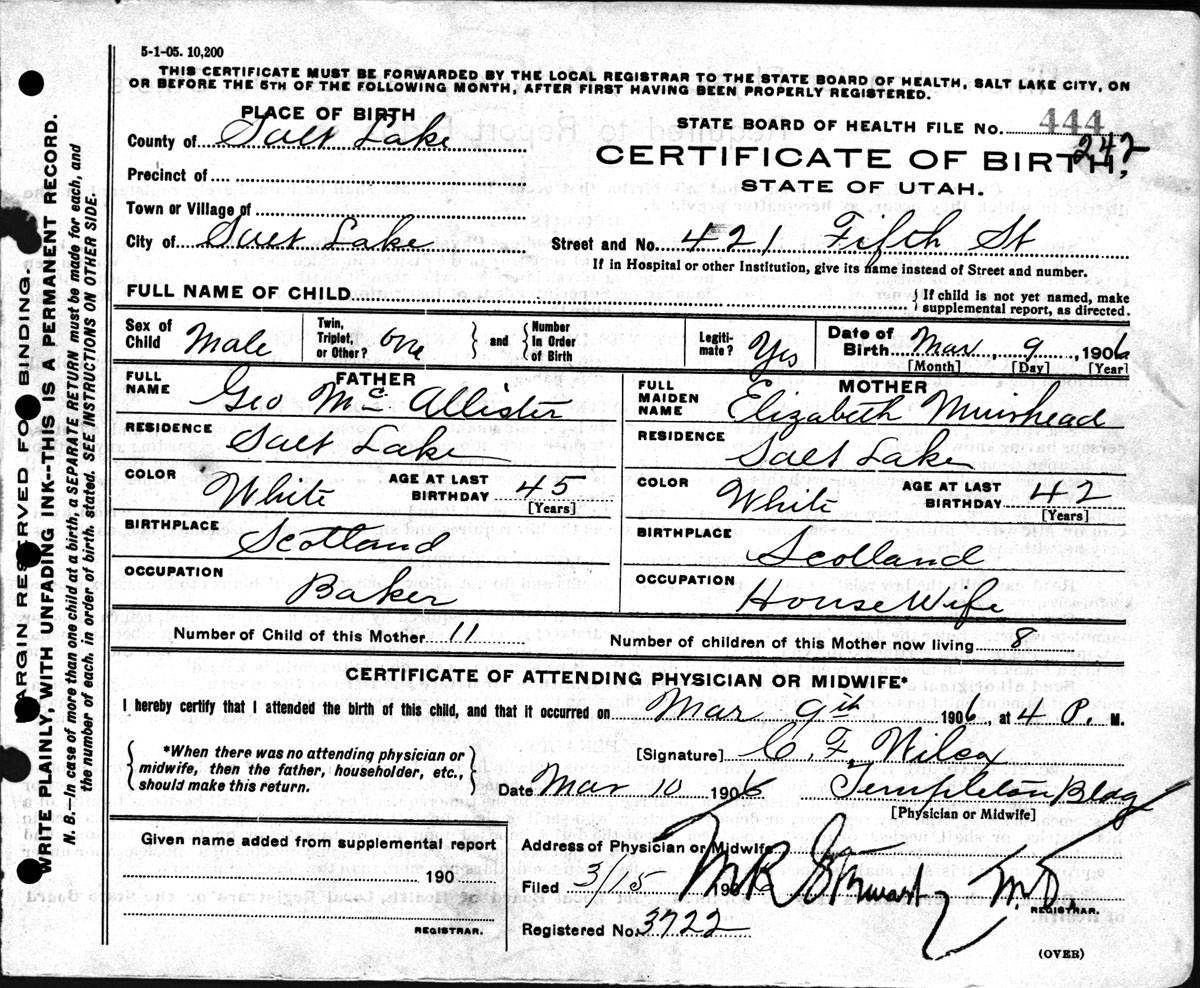 5-1-05. 10,200
THIS CERTIFICATE MUST BE FORWARDED BY THE LOCAL REGISTRAR TO THE STATE BOARD OF HEALTH, SALT LAKE CITY, ON
OR BEFORE THE 5TH OF THE FOLLOWING MONTH, AFTER FIRST HAVING BEEN PROPERLY REGISTERED.
PLACE OF BIRTH
County of Salt Lake
STATE BOARD OF HEALTH FILE NO. 444
242
CERTIFICATE OF BIRTH,
STATE OF UTAH.
Precinct of
Town or Village of
City of Salt Lake Street and No. 421 Fifth St
If in Hospital or other Institution, give its name instead of Street and number.
FULL NAME OF CHILD
If child is not yet named, make
supplemental report, as directed.
Sex of Child Male
Twin, Triplet, or Other? One and Number In Order of Birth
Legiti-mate? Yes
Date of Birth Mar 9, 1906
[Month] [Day] [Year]
FATHER
FULL NAME Geo McAllister
RESIDENCE Salt Lake
COLOR White AGE AT LAST BIRTHDAY 45
[Years]
BIRTHPLACE Scotland
OCCUPATION Baker
MOTHER
FULL MAIDEN NAME Elizabeth Muirhead
RESIDENCE Salt Lake
COLOR White AGE AT LAST BIRTHDAY 42
[Years]
BIRTHPLACE Scotland
OCCUPATION House Wife
Number of Child of this Mother 11 Number of children of this Mother now living 8
CERTIFICATE OF ATTENDING PHYSICIAN OR MIDWIFE*
I hereby certify that I attended the birth of this child, and that it occurred on Mar 9th 1906, at 4 P. M.
*When there was no attending physician or
midwife, then the father, householder, etc.,
should make this return.
[Signature] C. F. Wilcox
Date Mar 10 1906 Templeton Bldg
[Physician or Midwife]
Given name added from supplemental report
190
REGISTRAR.
Address of Physician or Midwife
Filed 3/15 1906 M.D.
REGISTRAR.
Registered No. 3722
(OVER)
MARGIN RESERVED FOR BINDING
WRITE PLAINLY, WITH UNFADING INK--THIS IS A PERMANENT RECORD.
N. B.--In case of more than one child at a birth, a SEPARATE RETURN must be made for each, and
the number of each, in order of birth, stated. SEE INSTRUCTIONS ON OTHER SIDE.